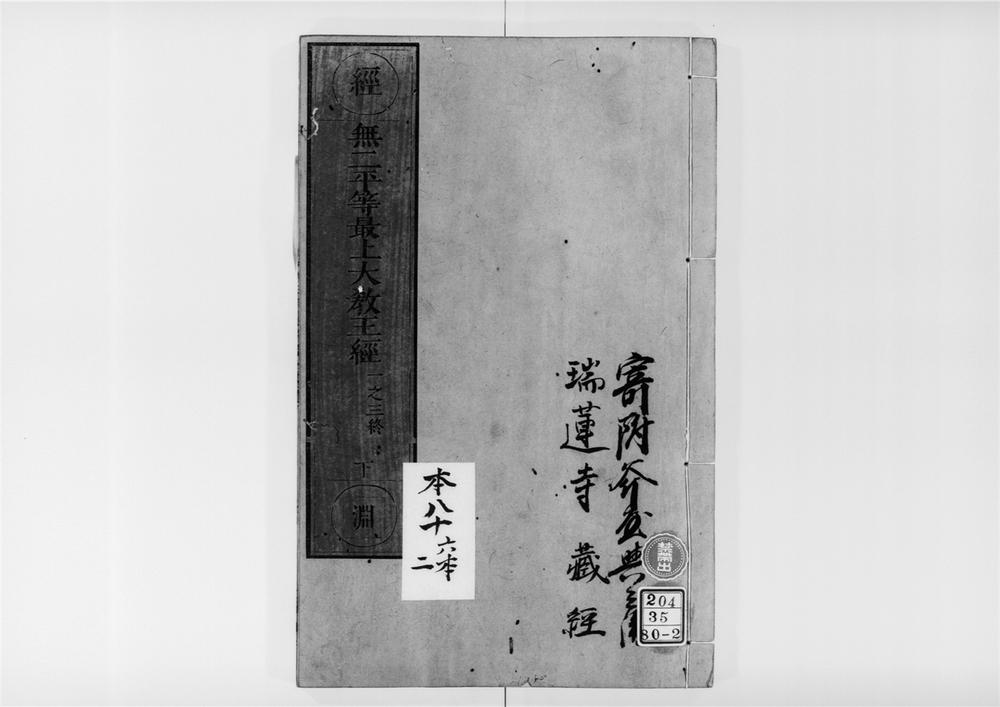 經
無二平等最上大教王經
一之三終
下
淵
本八十六本
二
寄附
典
瑞蓮寺藏經
禁帶出
204
35
80-2